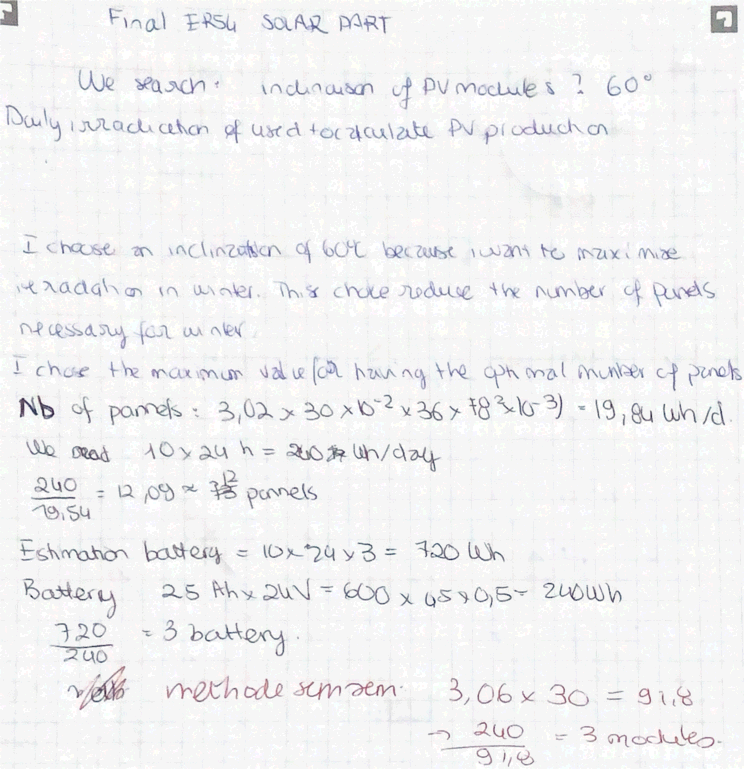 Final ER54 SOLAR PART
We search: inclinaison of PV modules? 60°
Daily irradication of used to calculate PV production
I choose an inclination of 60°C because i want to maximise
irradation in winter. This choice reduce the number of panels
necessary for winter.
I chose the maximum value for having the optimal number of panels
Nb of pannels: 3,02 x 30 x 10^-2 x 36 x (10^-3) = 19,84 Wh/d.
We need 10 x 24 h = 240 Wh/day
240/19,54 = 12,09 ≈ 12 pannels
Estimation battery = 10 x 24 x 3 = 720 Wh
Battery 25 Ah x 24V = 600 x 0,5 = 240Wh
720/240 = 3 battery.
methode 3,06 x 30 = 91,8
→ 240/91,8 = 3 modules.